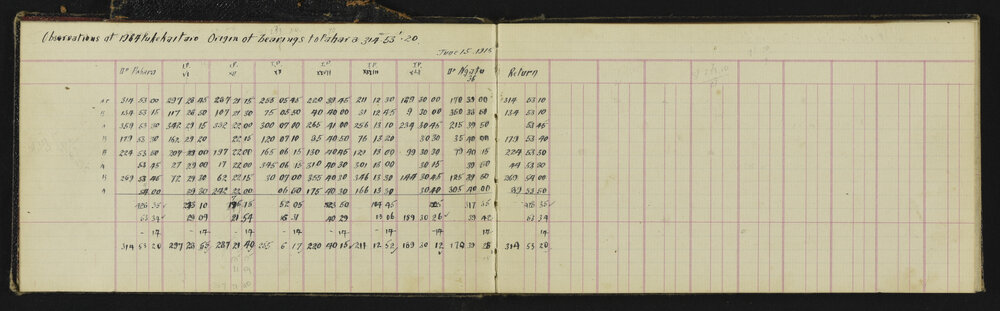 Observations at 1964 Pukekaitaro Origin of bearings to Pahara 314°-53'-20.
June 15. 1915
Dr Pahara I.P. VI I.P. XII I.P. XV I.P. XXVII I.P. XXXIII I.P. XLI Dr Ngatu 36 Return
314 53 00 297 28 45 267 21 15 255 05 45 220 39 45 211 12 30 189 30 00 170 39 00 314 53 10
B 134 53 15 117 28 50 107 21 30 75 05 50 40 40 00 31 12 45 9 30 00 350 38 50 134 53 10
A 359 53 30 342 29 15 332 22 00 300 07 00 265 41 00 256 13 10 234 30 45 215 39 50 53 45
179 53 30 162 29 20 22 15 120 07 10 85 40 50 76 13 20 30 30 35 40 00 179 53 40
B 224 53 50 207 29 00 197 22 00 165 06 15 130 40 45 121 13 00 99 30 30 79 40 15 224 53 30
A 53 45 27 29 00 17 22 00 345 06 15 310 40 30 301 13 00 30 15 39 50 44 53 30
B 269 53 45 72 29 30 62 22 15 30 07 00 355 40 20 346 13 30 144 30 45 125 39 50 269 54 00
A 54 00 29 30 242 22 00 06 50 175 40 30 166 13 30 30 40 305 40 00 89 53 50
53 34 29 09 21 54 40 29 13 06 189 30 26 39 42 53 34
- 14 - 14 - 14 - 14 - 14 - 14 - 14 14 14
314 53 20 297 28 55 287 21 40 255 6 17 220 40 15 211 12 52 189 30 12 170 39 28 314 53 20